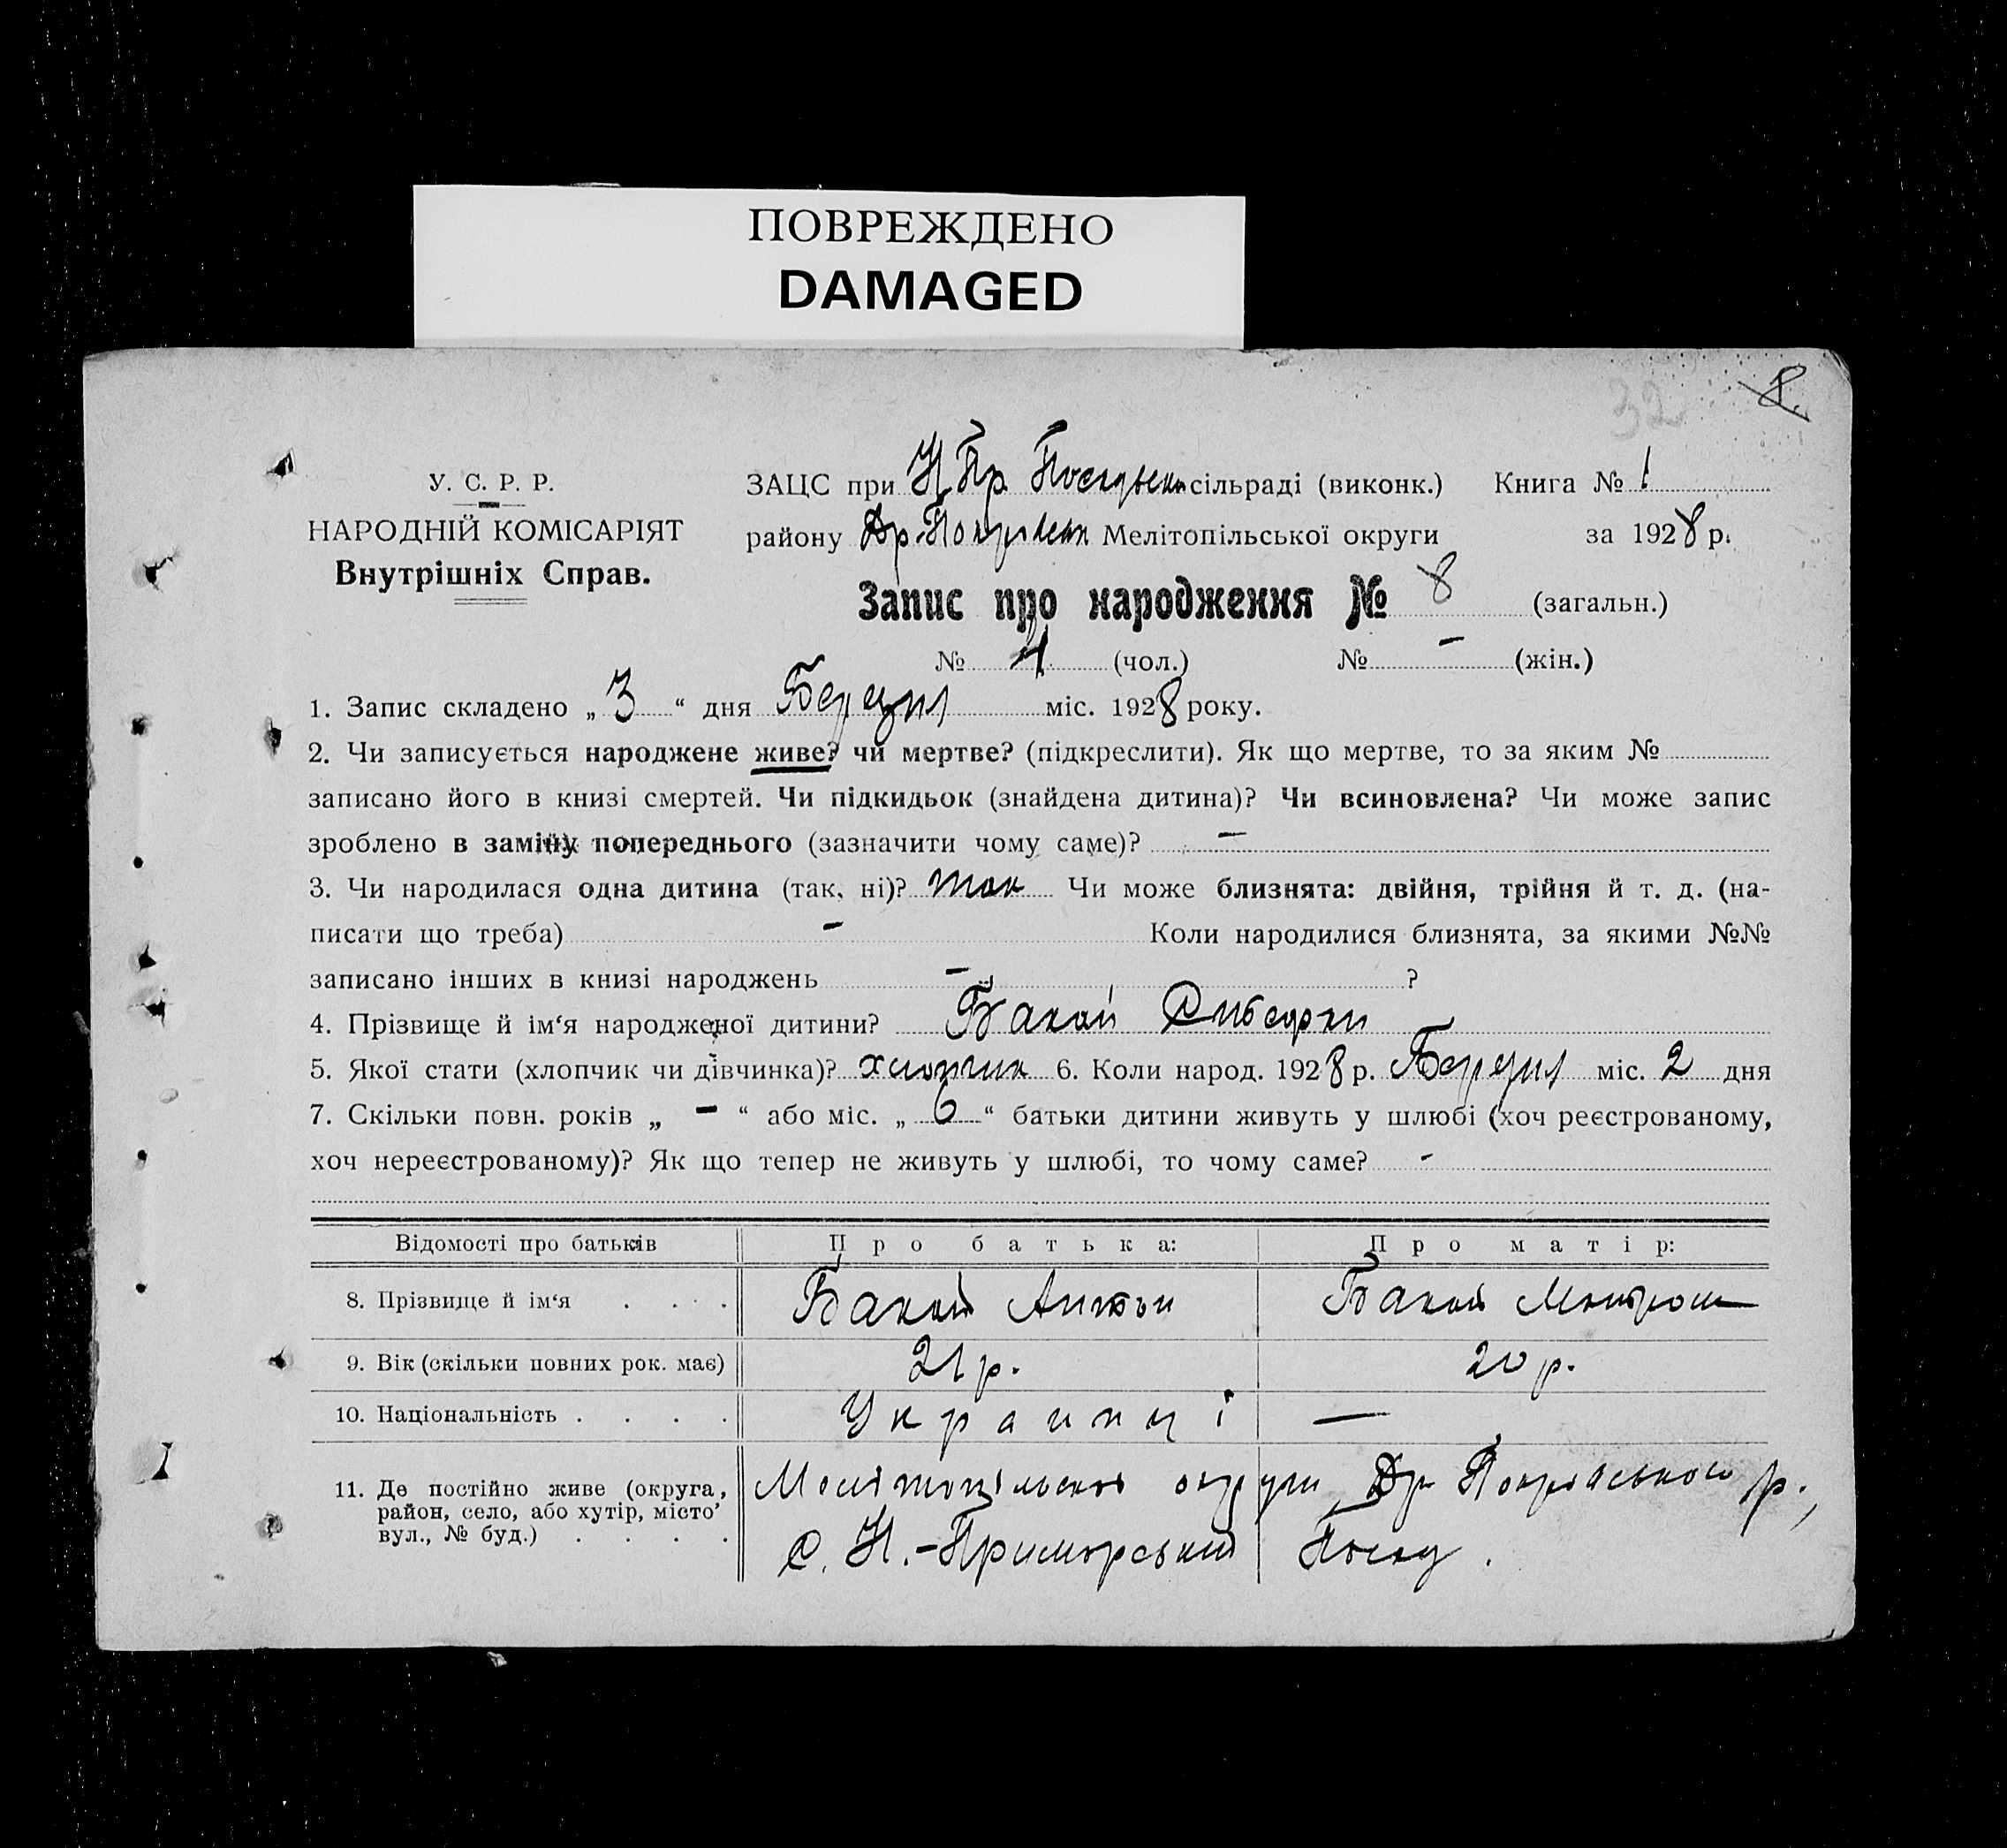 ПОВРЕЖДЕНО
DAMAGED
32 8.
У. С. Р. Р.
НАРОДНІЙ КОМІСАРІЯТ
Внутрішніх Справ.
ЗАЦС при Н Пр. сільраді (виконк.) Книга № 1
району Др. Мелітопільської округи за 1928 р.
Запис про народження № 8 (загальн.)
№ 4 (чол.) № – (жін.)
1. Запис складено „ 3 “ дня Березня міс. 1928 року.
2. Чи записується народжене живе? чи мертве? (підкреслити). Як що мертве, то за яким №
записано його в книзі смертей. Чи підкидьок (знайдена дитина)? Чи всиновлена? Чи може запис
зроблено в заміну попереднього (зазначити чому саме)? –
3. Чи народилася одна дитина (так, ні)? так Чи може близнята: двійня, трійня й т. д. (на-
писати що треба) – Коли народилися близнята, за якими №№
записано інших в книзі народжень – ?
4. Прізвище й ім‘я народженої дитини? Бакай
5. Якої стати (хлопчик чи дівчинка)? хлопчик 6. Коли народ. 1928 р. Березня міс. 2 дня
7. Скільки повн. років „ – “ або міс. „ 6 “ батьки дитини живуть у шлюбі (хоч реєстрованому,
хоч нереєстрованому)? Як що тепер не живуть у шлюбі, то чому саме? -
Відомості про батьків Про батька: Про матір:
8. Прізвище й ім‘я . . . . Бакай Антон Бакай
9. Вік (скільки повних рок. має) 21 р. 20 р.
10. Національність . . . . Украинці —
11. Де постійно живе (округа,
район, село, або хутір, місто’
вул., № буд.) . . . .
Мелітопільскої округи, Др Покровського р.,
с. Н.-Приморський Посад.